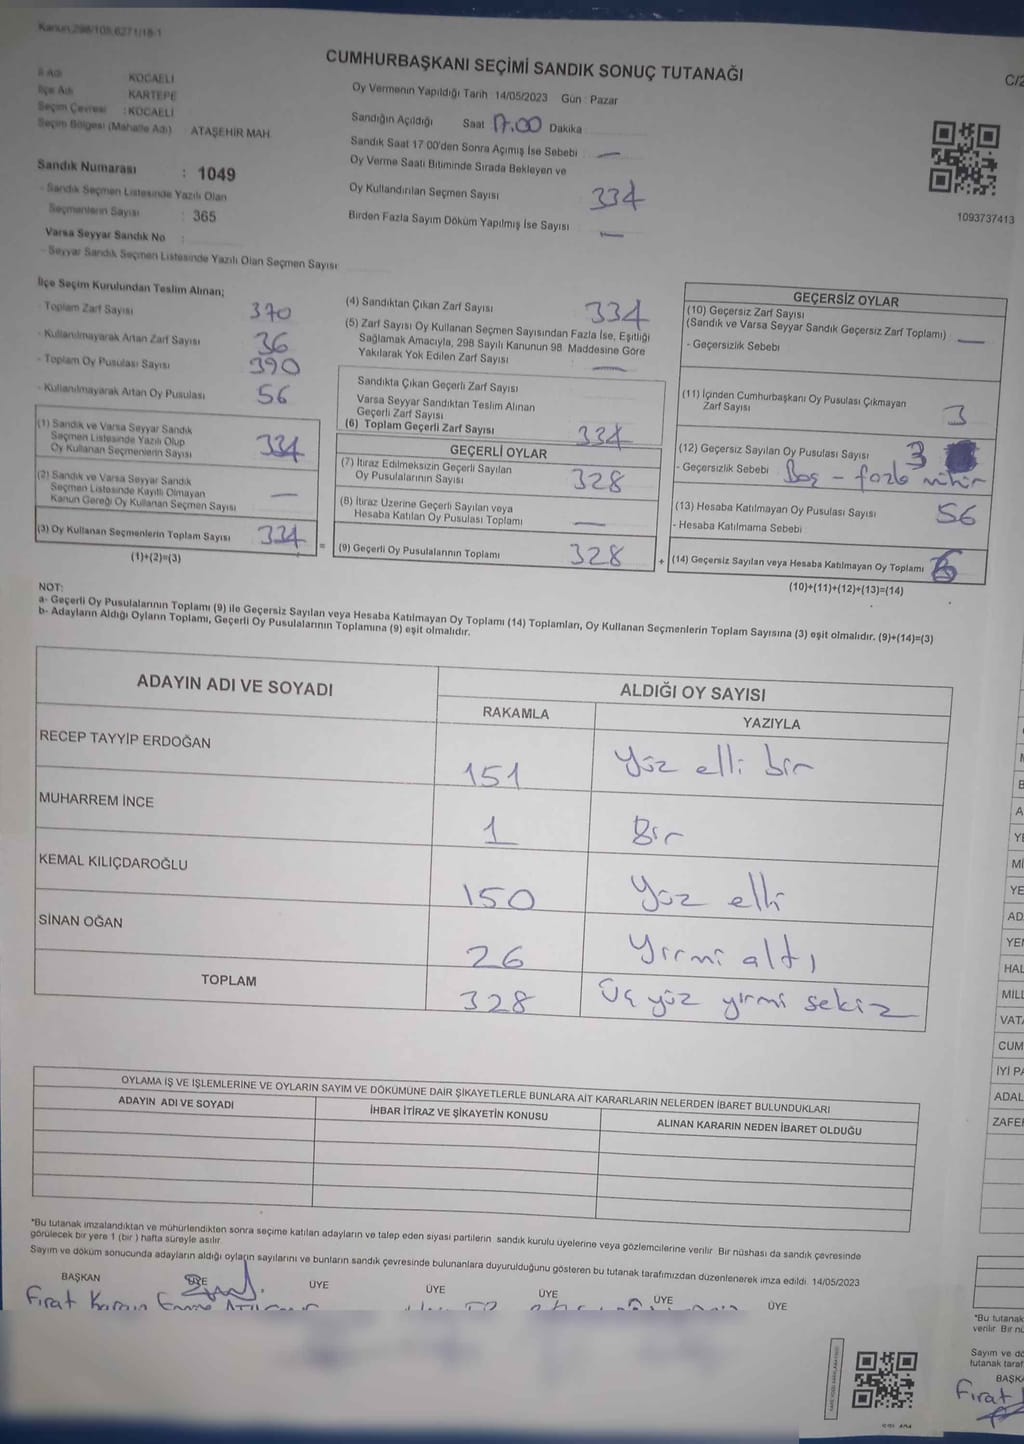 Kanun,298/105,6271/18-1
CUMHURBAŞKANI SEÇİMİ SANDIK SONUÇ TUTANAĞI
C/2
İl Adı KOCAELİ
İlçe Adı KARTEPE
Seçim Çevresi : KOCAELİ
Seçim Bölgesi (Mahalle Adı) ATAŞEHİR MAH.
Oy Vermenin Yapıldığı Tarih 14/05/2023 Gün : Pazar
Sandığın Açıldığı Saat 17.00 Dakika
Sandık Saat 17 00'den Sonra Açımış İse Sebebi —
Oy Verme Saati Bitiminde Sırada Bekleyen ve
Oy Kullandırılan Seçmen Sayısı 334
Birden Fazla Sayım Döküm Yapılmış İse Sayısı —
1093737413
Sandık Numarası : 1049
- Sandık Seçmen Listesinde Yazılı Olan
Seçmenlerin Sayısı : 365
Varsa Seyyar Sandık No :
- Seyyar Sandık Seçmen Listesinde Yazılı Olan Seçmen Sayısı
İlçe Seçim Kurulundan Teslim Alınan;
- Toplam Zarf Sayısı 370
- Kullanılmayarak Artan Zarf Sayısı 36
- Toplam Oy Pusulası Sayısı 390
- Kullanılmayarak Artan Oy Pusulası 56
(1) Sandık ve Varsa Seyyar Sandık
Seçmen Listesinde Yazılı Olup
Oy Kullanan Seçmenlerin Sayısı 334
(2) Sandık ve Varsa Seyyar Sandık
Seçmen Listesinde Kayıtlı Olmayan
Kanun Gereği Oy Kullanan Seçmen Sayısı —
(3) Oy Kullanan Seçmenlerin Toplam Sayısı 334 =
(1)+(2)=(3)
(4) Sandıktan Çıkan Zarf Sayısı 334
(5) Zarf Sayısı Oy Kullanan Seçmen Sayısından Fazla İse, Eşitliği
Sağlamak Amacıyla, 298 Sayılı Kanunun 98 Maddesine Göre
Yakılarak Yok Edilen Zarf Sayısı —
Sandıkta Çıkan Geçerli Zarf Sayısı
Varsa Seyyar Sandıktan Teslim Alınan
Geçerli Zarf Sayısı
(6) Toplam Geçerli Zarf Sayısı 334
GEÇERLİ OYLAR
(7) İtiraz Edilmeksizin Geçerli Sayılan
Oy Pusulalarının Sayısı 328
(8) İtiraz Üzerine Geçerli Sayılan veya
Hesaba Katılan Oy Pusulası Toplamı —
(9) Geçerli Oy Pusulalarının Toplamı 328 +
GEÇERSİZ OYLAR
(10) Geçersiz Zarf Sayısı
(Sandık ve Varsa Seyyar Sandık Geçersiz Zarf Toplamı) —
- Geçersizlik Sebebi
(11) İçinden Cumhurbaşkanı Oy Pusulası Çıkmayan
Zarf Sayısı 3
(12) Geçersiz Sayılan Oy Pusulası Sayısı 3
- Geçersizlik Sebebi Boş - fazla mühür
(13) Hesaba Katılmayan Oy Pusulası Sayısı 56
- Hesaba Katılmama Sebebi
(14) Geçersiz Sayılan veya Hesaba Katılmayan Oy Toplamı 6
(10)+(11)+(12)+(13)=(14)
NOT:
a- Geçerli Oy Pusulalarının Toplamı (9) ile Geçersiz Sayılan veya Hesaba Katılmayan Oy Toplamı (14) Toplamları, Oy Kullanan Seçmenlerin Toplam Sayısına (3) eşit olmalıdır. (9)+(14)=(3)
b- Adayların Aldığı Oyların Toplamı, Geçerli Oy Pusulalarının Toplamına (9) eşit olmalıdır.
ADAYIN ADI VE SOYADI ALDIĞI OY SAYISI
RAKAMLA YAZIYLA
RECEP TAYYİP ERDOĞAN 151 Yüz elli bir
MUHARREM İNCE 1 Bir
KEMAL KILIÇDAROĞLU 150 Yüz elli
SİNAN OĞAN 26 Yirmi altı
TOPLAM 328 Üç yüz yirmi sekiz
OYLAMA İŞ VE İŞLEMLERİNE VE OYLARIN SAYIM VE DÖKÜMÜNE DAİR ŞİKAYETLERLE BUNLARA AİT KARARLARIN NELERDEN İBARET BULUNDUKLARI
ADAYIN ADI VE SOYADI İHBAR İTİRAZ VE ŞİKAYETİN KONUSU ALINAN KARARIN NEDEN İBARET OLDUĞU
*Bu tutanak imzalandıktan ve mühürlendikten sonra seçime katılan adayların ve talep eden siyasi partilerin sandık kurulu üyelerine veya gözlemcilerine verilir. Bir nüshası da sandık çevresinde
görülecek bir yere 1 (bir ) hafta süreyle asılır.
Sayım ve döküm sonucunda adayların aldığı oyların sayılarını ve bunların sandık çevresinde bulunanlara duyurulduğunu gösteren bu tutanak tarafımızdan düzenlenerek imza edildi. 14/05/2023
BAŞKAN ÜYE ÜYE ÜYE ÜYE ÜYE ÜYE
Fırat
YE
MİL
YE
AD
YE
HAL
MILL
VATA
CUM
İYİ PA
ADAL
ZAFE
*Bu tutanak
verilir. Bir nü
Sayım ve dö
tutanak taraf
BAŞKA
Fırat